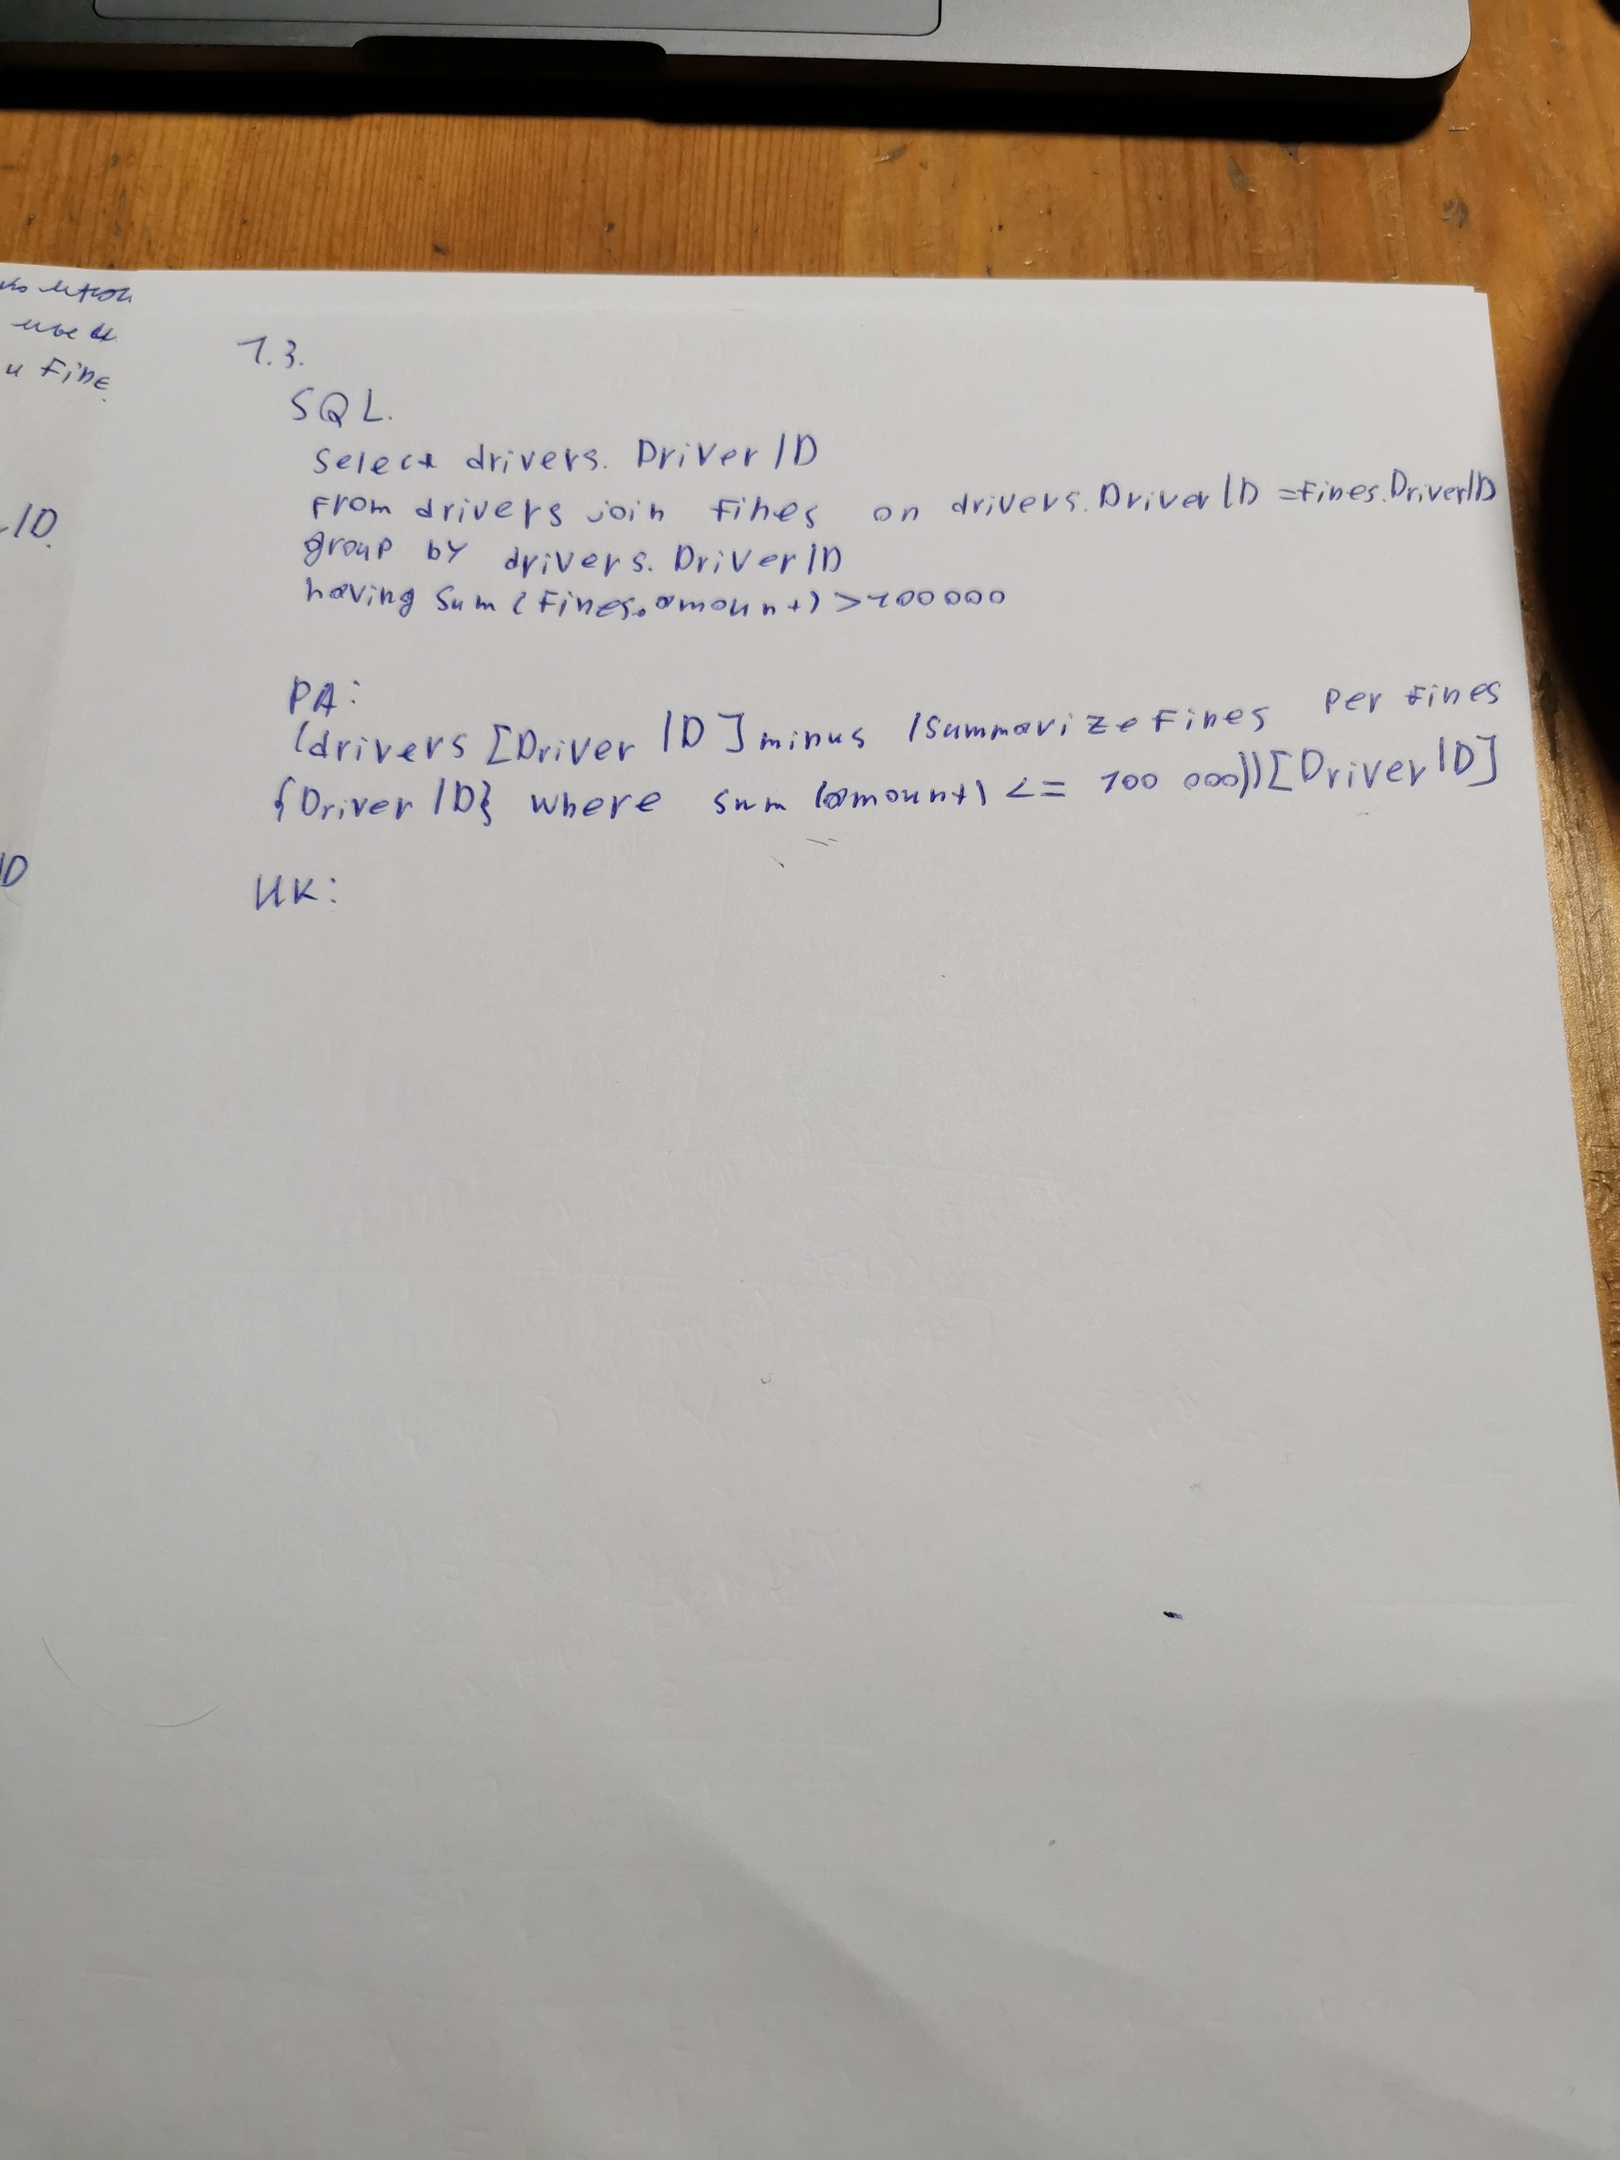 и Fine.
ID.
ID
1.3.
SQL.
Select drivers. DriverID
From drivers join fines on drivers.DriverID = fines.DriverID
group by drivers. DriverID
having sum (Fines.amount) > 100000
РА:
(drivers [Driver ID] minus (summarize Fines per fines
{Driver ID} where sum (amount) <= 100 000))[DriverID]
ИК: